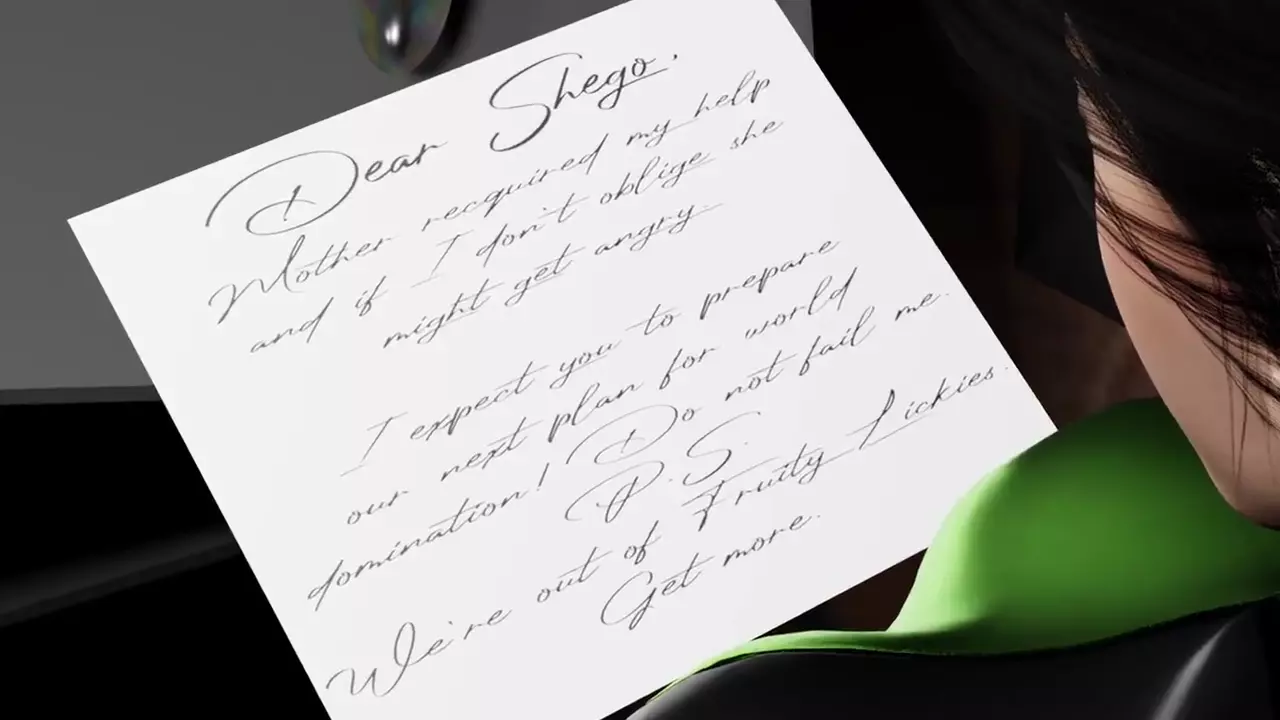 Dear Shego,
Mother recquired my help
and if I don't oblige she
might get angry.
I expect you to prepare
our next plan for world
domination! Do not fail me.
P.S.
We're out of Fruity Lickies.
Get more.